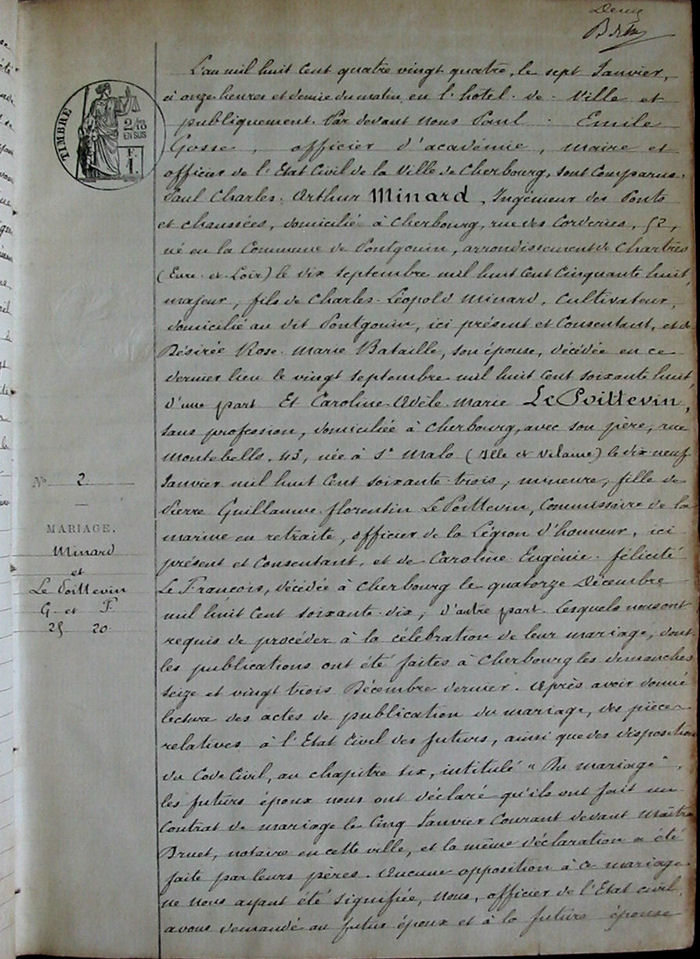 TIMBRE
2/10
EN SUS
N° 2
MARIAGE.
Minard
et
Le Poittevin
G. et F.
25 20
L'an mil huit cent quatre vingt quatre, le sept Janvier,
à onze heures et demie du matin, en l'hôtel de Ville et
publiquement. Par devant nous Paul Emile
Gosse, officier d'académie, maire et
officier de l'Etat Civil de la Ville de Cherbourg, sont comparus
Paul Charles Arthur Minard, Ingénieur des Ponts
et chaussées, domicilié à Cherbourg, rue des Corderies, 52,
né en la Commune de Pontgouin, arrondissement de Chartres
(Eure-et-Loir) le dix septembre mil huit cent cinquante huit,
majeur, fils de Charles-Léopold Minard, Cultivateur,
domicilié au dit Pontgouin, ici présent et Consentant, et de
Désirée Rose Marie Bataille, son épouse, décédée en ce
dernier lieu le vingt septembre mil huit cent soixante huit
d'une part Et Caroline Adèle Marie Le Poittevin,
sans profession, domiciliée à Cherbourg, avec son père, rue
Montebello, 43, née à St Malo (Ille et Vilaine) le dix neuf
Janvier mil huit cent soixante trois, mineure, fille de
Pierre Guillaume Florentin Le Poittevin, Commissaire de la
marine en retraite, officier de la Légion d'honneur, ici
présent et consentant, et de Caroline Eugénie Félicité
Le François, décédée à Cherbourg le quatorze Décembre
mil huit cent soixante-dix, d'autre part. Lesquels nous ont
requis de procéder à la célébration de leur mariage, dont
les publications ont été faites à Cherbourg les dimanches
seize et vingt trois Décembre dernier. Après avoir donné
lecture des actes de publication du mariage, des pièces
relatives à l'Etat Civil des futurs, ainsi que des disposition
du Code Civil, au chapitre six, intitulé "Du mariage",
les futurs époux nous ont déclaré qu'ils ont fait un
Contrat de mariage le Cinq Janvier Courant devant Maître
Bruet, notaire en cette ville, et la même déclaration a été
faite par leurs pères. Aucune opposition à ce mariage
ne nous ayant été signifiée, Nous, officier de l'Etat civil,
avons demandé au futur époux et à la future épouse